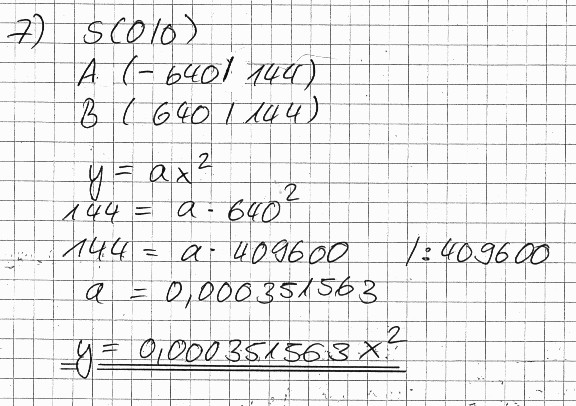 7) S(0|0)
A (-640| 144)
B ( 640 | 144)
y = ax²
144 = a · 640²
144 = a · 409600 /: 409600
a = 0,000351563
y = 0,000351563 x²